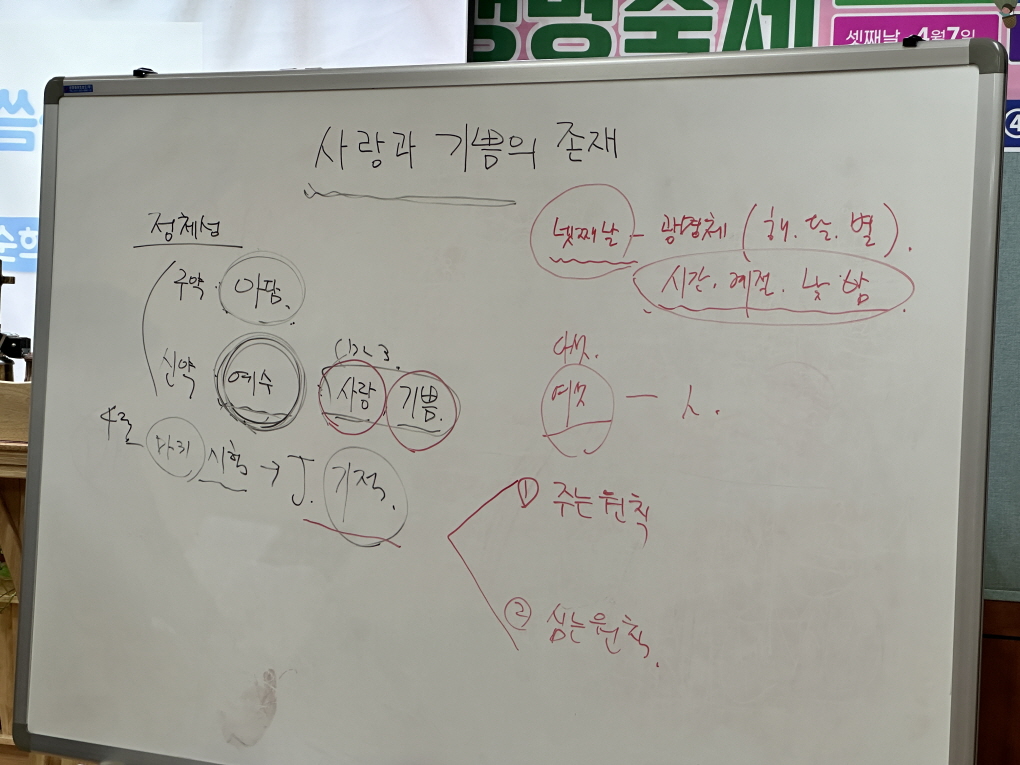 생명축제
셋째날 4월7일
④
사랑과 기쁨의 존재
정체성
구약 · 아담.
신약 예수
사랑 기쁨.
4월
시험 → J. 기적.
넷째날 - 광명체 (해. 달. 별).
시간. 계절. 낮 밤
다섯.
여섯 —
① 주는 원칙
② 심는 원칙.